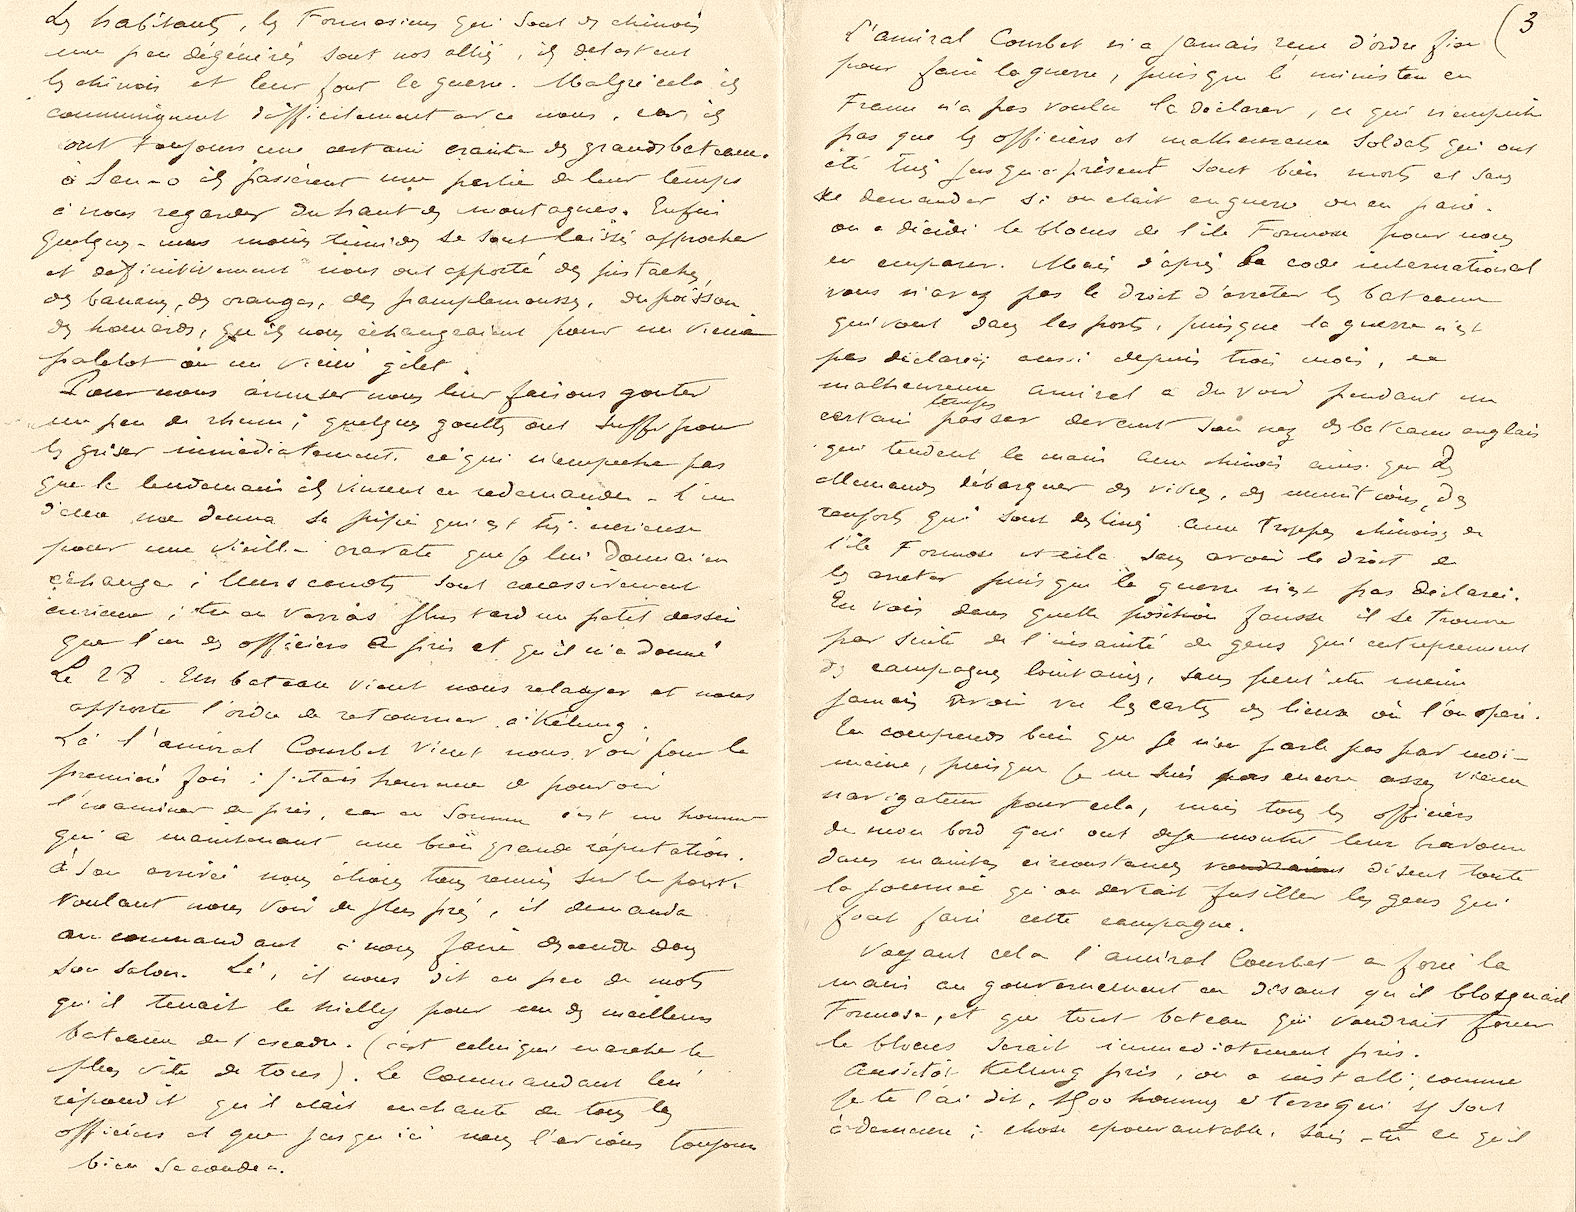 Les habitants, les Formosiens qui sont des chinois
un peu dégénérés sont nos alliés, ils detestent
les chinois et leur font la guerre. Malgré cela ils
communiquent difficilement avec nous, car ils
ont toujours une certaine crainte des grands bateaux.
à Sau-o ils passèrent une partie de leur temps
à nous regarder du haut des montagnes. Enfin
quelques-uns moins timides se sont laissés approcher
et definitivement nous ont apporté des pistaches,
des bananes, des oranges, des pamplemousses, du poisson
des homards, qu'ils nous échangeaient pour un vieux
paletot ou un vieux gilet.
Pour nous amuser nous leur faisions gouter
un peu de rhum ; quelques gouttes ont suffi pour
les griser immédiatement. ce qui n'empeche pas
que le lendemain ils vinrent en redemander - L'un
d'eux me donna sa pipe qui est très curieuse
pour une vieille cravate que je lui donnai en
échange ; leurs canots sont excessivement
curieux ; tu en verras plus tard un petit dessin
que l'un des officiers a pris et qu'il m'a donné
Le 28 - Un bateau vient nous relayer et nous
apporte l'ordre de retourner à Kélung.
Là l'amiral Courbet vient nous voir pour la
première fois ; j'étais heureux de pouvoir
l'examiner de près, car en somme c'est un homme
qui a maintenant une bien grande réputation.
à son arrivée nous étions tous reunis sur le pont.
Voulant nous voir de plus près, il demanda
au commandant à nous faire descendre dans
son salon. Là, il nous dit en peu de mots
qu'il tenait le Nielly pour un des meilleurs
bateaux de l'escadre. (c'est celui qui marche le
plus vite de tous). Le Commandant lui
répondit qu'il était enchanté de tous les
officiers et que jusqu'ici nous l'avions toujours
bien secondé.
(3
L'amiral Courbet n'a jamais reçu d'ordre fixe
pour faire la guerre, puisque le ministère en
France n'a pas voulu la déclarer, ce qui n'empeche
pas que les officiers et malheureux soldats qui ont
été tués jusqu'à présent sont bien morts et sans
se demander si on était en guerre ou en paix.
on a décidé le blocus de l'île Formose pour nous
en emparer. Mais d'après le code international
vous n'avez pas le droit d'arreter les bateaux
qui vont dans les ports, puisque la guerre n'est
pas déclarée, aussi depuis trois mois, ce
malheureux amiral a du voir pendant un
certain temps passer devant son nez des bateaux anglais
qui tendent la main aux chinois ainsi que les
allemands débarquer des vivres, des munitions, des
renforts qui sont destinés aux troupes chinoises de
l'île Formose et cela sans avoir le droit de
les arreter puisque la guerre n'est pas déclarée.
Tu vois dans quelle position fausse il se trouve
par suite de l'insanité de gens qui entreprennent
des campagnes lointaines, sans peut être même
jamais avoir vu les cartes des lieux où l'on opère.
Tu comprends bien que je n'en parle pas par moi-
même, puisque je ne suis pas encore assez vieux
navigateur pour cela, mais tous les officiers
de mon bord qui ont deja montré leur bravoure
dans maintes circonstances disent toute
la journée qu'on devrait fusiller les gens qui
font faire cette campagne.
Voyant cela l'amiral Courbet a forcé la
main au gouvernement en disant qu'il bloquait
Formose, et que tout bateau qui voudrait forcer
le blocus serait immediatement pris.
Aussitôt Kelung pris, on a installé, comme
je te l'ai dit, 1500 hommes à terre qui y sont
à demeure ; chose epouvantable. Sais-tu ce qu'il